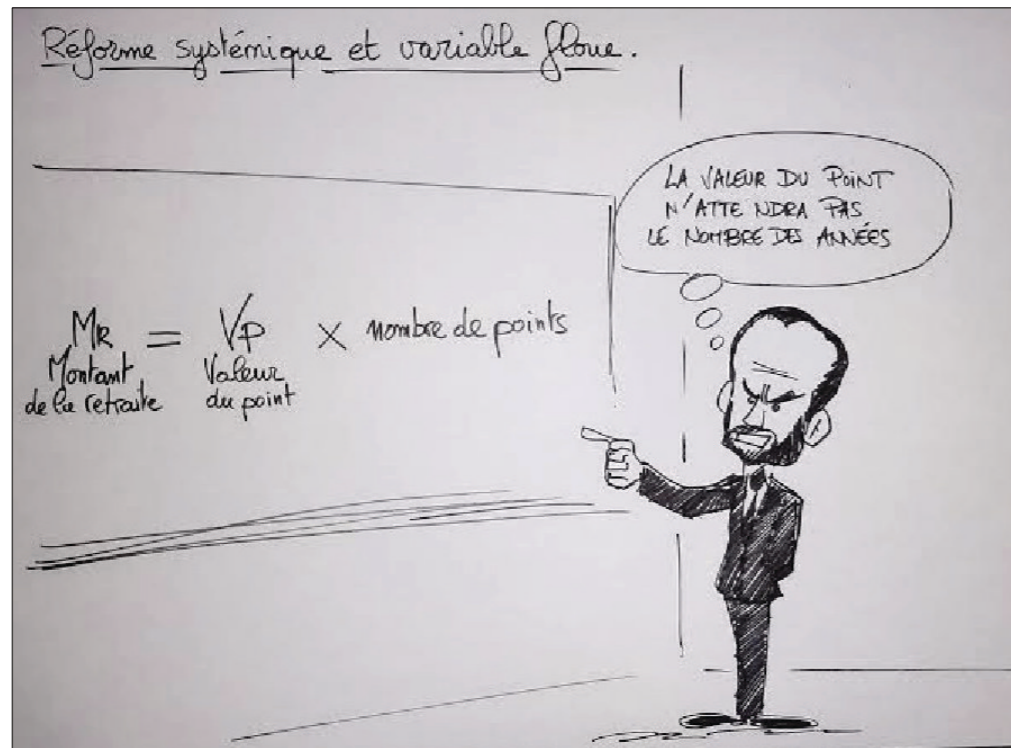 Réforme systémique et variable floue.
LA VALEUR DU POINT
N'ATTENDRA PAS
LE NOMBRE DES ANNÉES
MR = VP × nombre de points
Montant Valeur
de la retraite du point